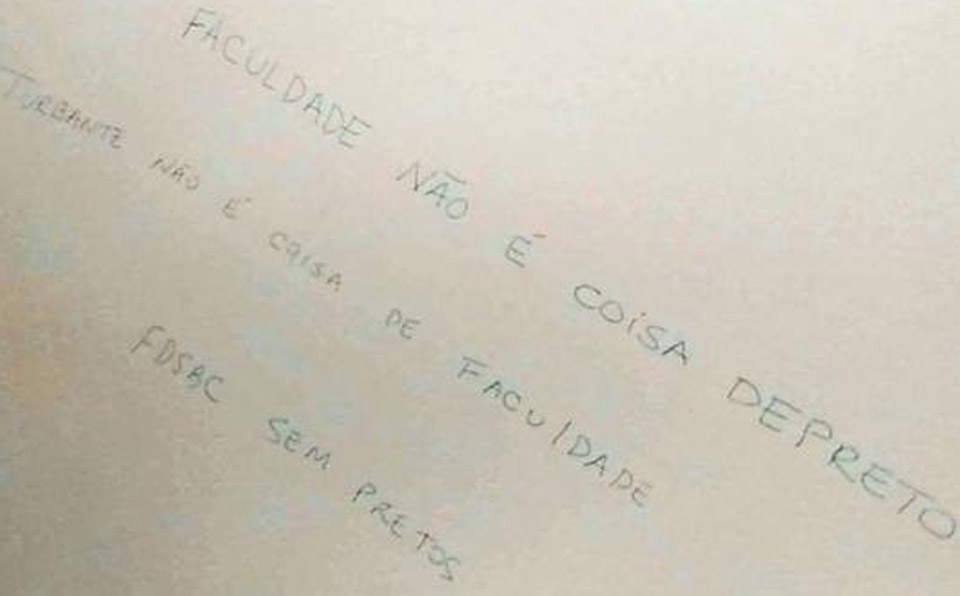 FACULDADE NÃO É COISA DEPRETO
TURBANTE NÃO É COISA DE FACULDADE
FDSBC SEM PRETOS